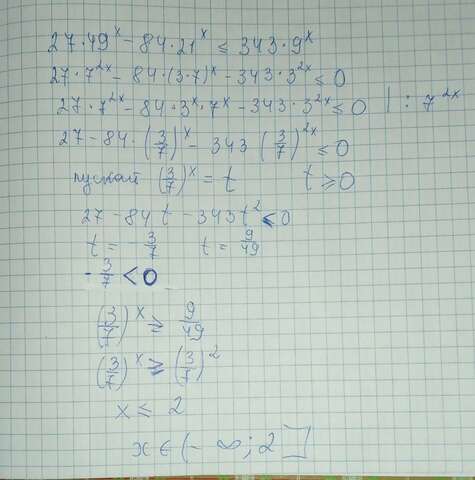 27·49^x − 84·21^x ≤ 343·9^x
27·7^{2x} − 84·(3·7)^x − 343·3^{2x} ≤ 0
27·7^{2x} − 84·3^x·7^x − 343·3^{2x} ≤ 0 | : 7^{2x}
27 − 84·(3/7)^x − 343 (3/7)^{2x} ≤ 0
пускай (3/7)^x = t t ≥ 0
27 − 84t − 343t² < 0
t = −3/7 t = 9/49
−3/7 < 0
(3/7)^x ≥ 9/49
(3/7)^x ≥ (3/7)^2
x ≤ 2
x ∈ (−∞; 2]